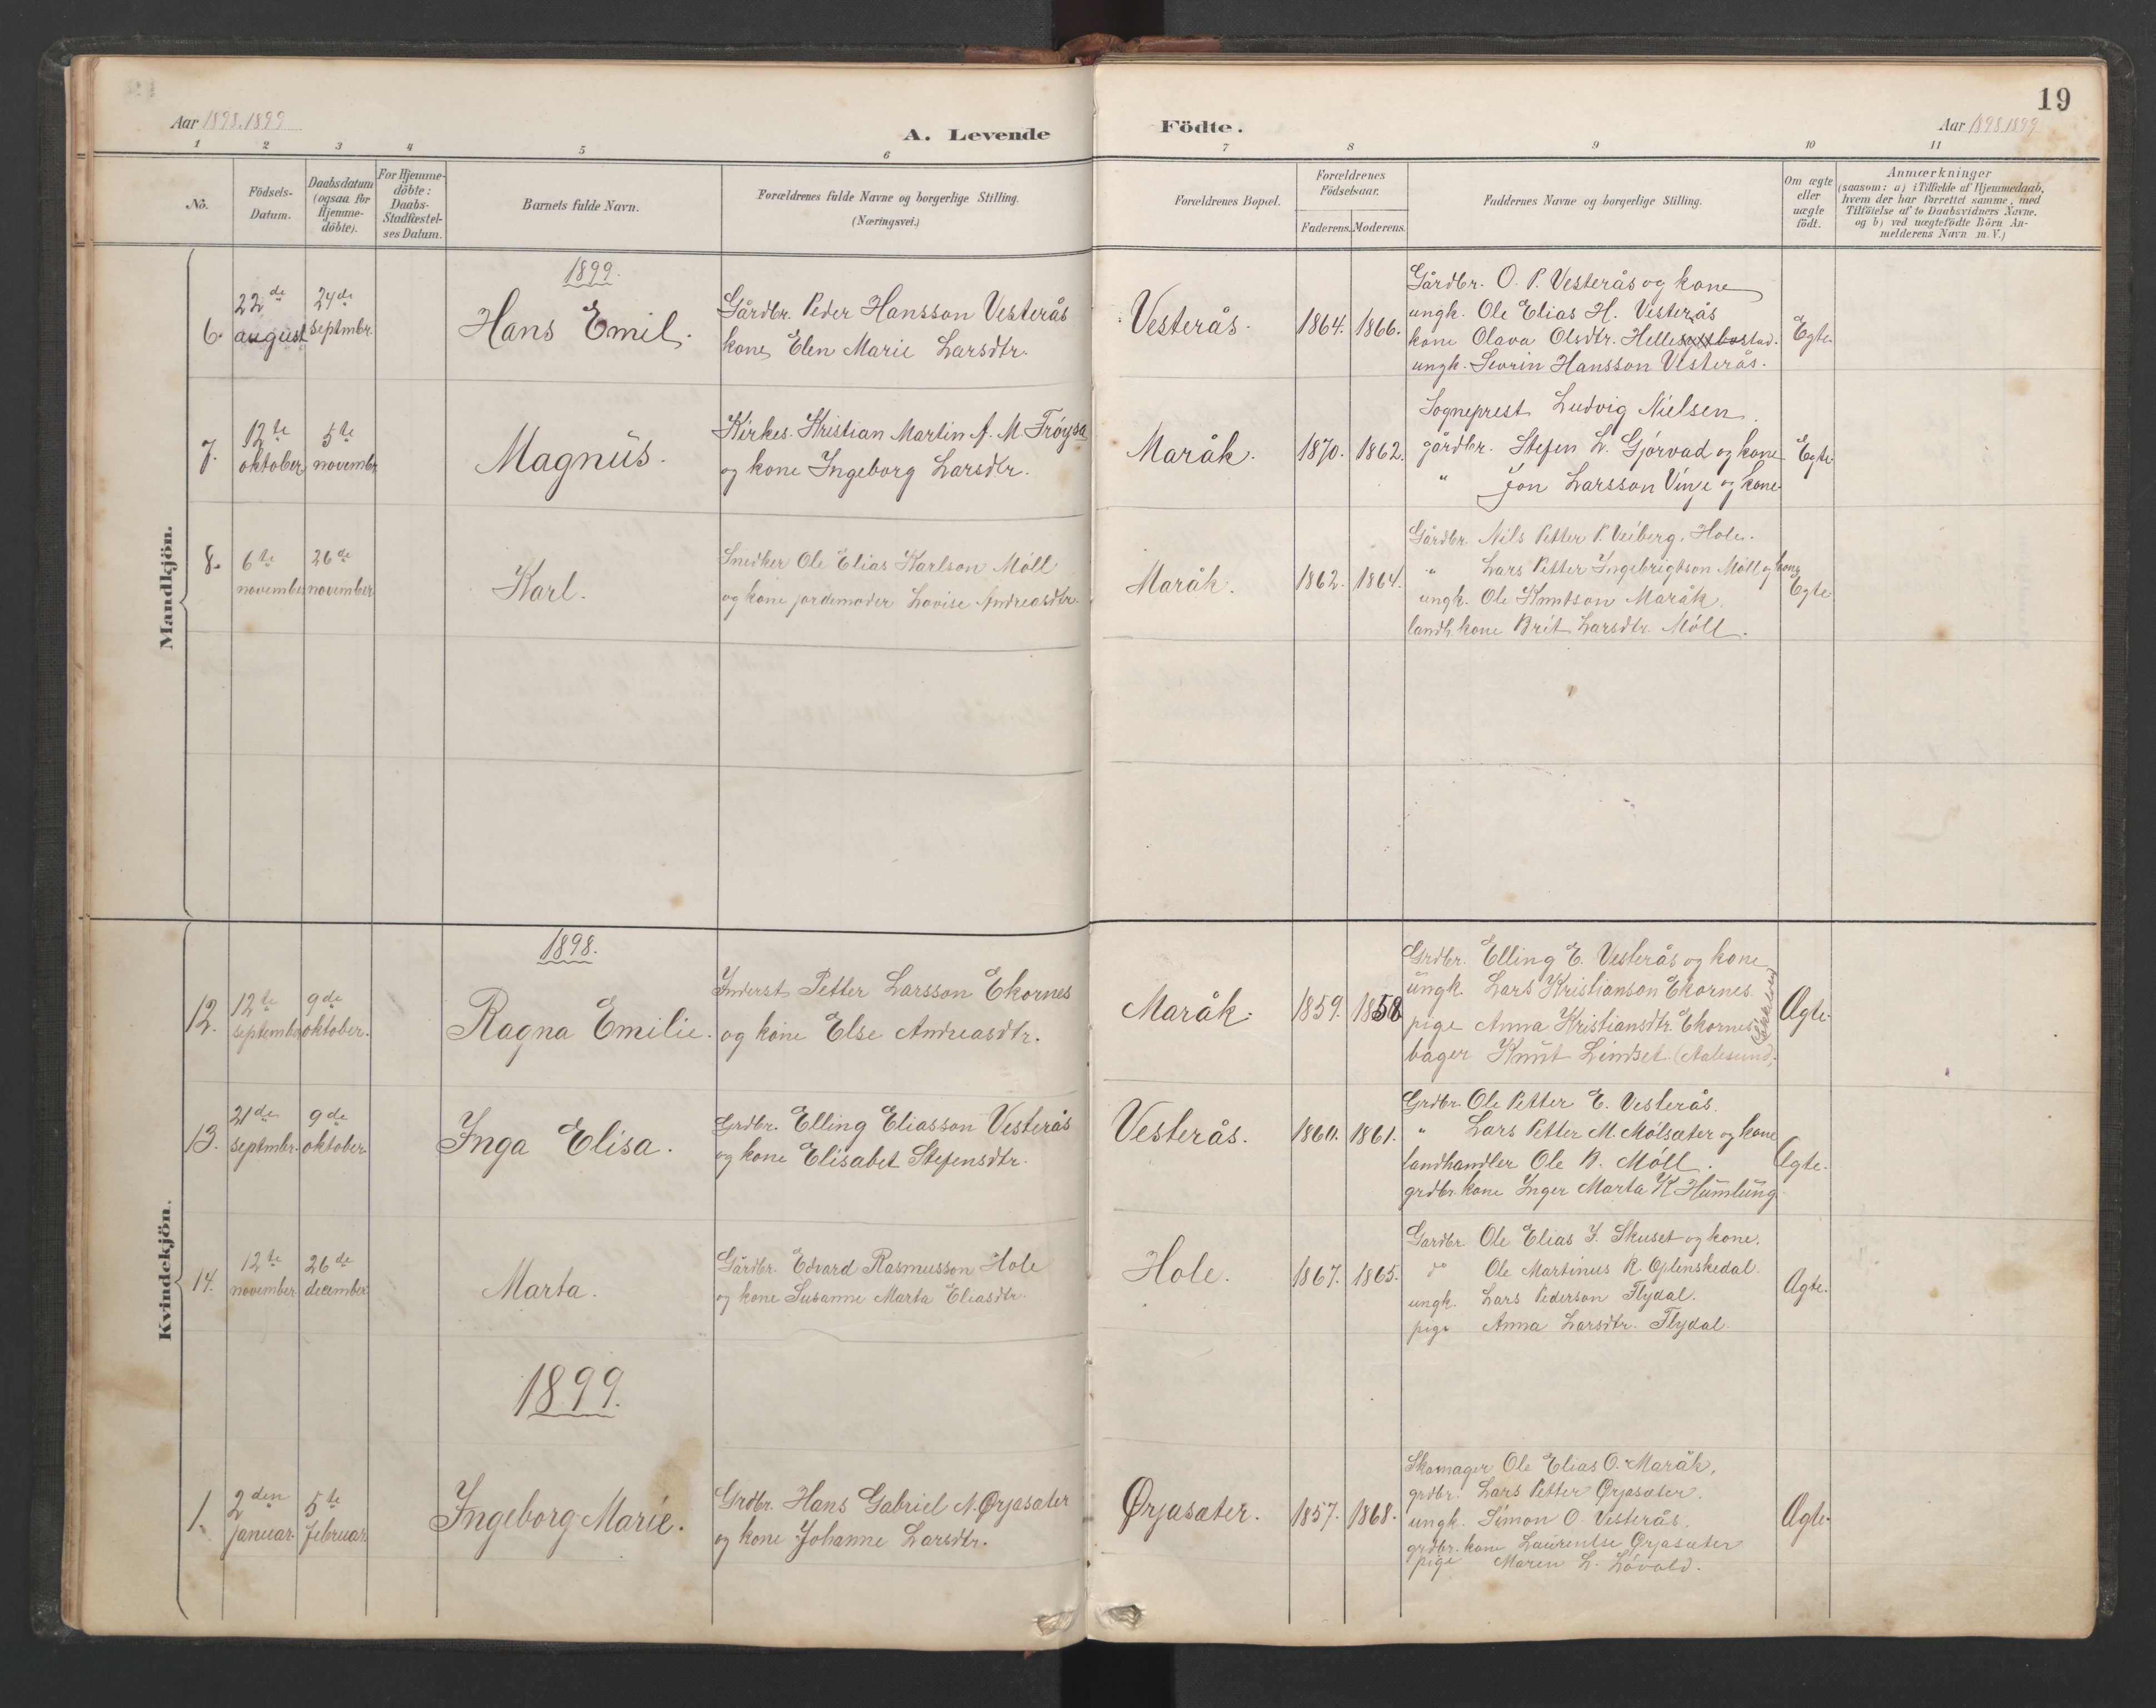 19
Aar 1898.1899
A. Levende Födte.
Aar 1898.1899
1 2 3 4 5 6 7 8 9 10 11
No.
Födsels-
Datum.
Daabsdatum
(ogsaa for
Hjemme-
döbte).
For Hjemme-
döbte:
Daabs-
Stadfœstel-
ses Datum.
Barnets fulde Navn.
Forœldrenes fulde Navne og borgerlige Stilling.
(Næringsvei.)
Forœldrenes Bopœl.
Forœldrenes
Födselsaar.
Faderens. Moderens.
Faddernes Navne og borgerlige Stilling.
Om œgte
eller
uœgte
födt.
Anmœrkninger
(saasom: a) i Tilfœlde af Hjemmedaab,
hvem der har forrettet samme, med
Tilföielse af to Daabsvidners Navne,
og b) ved uœgtefödte Börn An-
melderens Navn m. V.)
Mandkjön.
1899.
6.
22de
august
24de
septmbr.
Hans Emil.
Gårdbr. Peder Hansson Vesterås
kone Elen Marie Larsdtr.
Vesterås.
1864. 1866.
Gårdbr. O. P. Vesterås og kone
ungk. Ole Elias H. Vesterås
kone Olava Olsdtr. Hellesyltbostad.
ungk. Sevrin Hansson Vesterås.
Egte.
7.
12te
oktober
5te
novembr
Magnus.
Kirkes. Kristian Martin A. M. Frøysa
og kone Ingeborg Larsdtr.
Maråk.
1870. 1862.
Sogneprest Ludvig Nielsen.
gårdbr. Stefen L. Gjørvad og kone
" Jon Larsson Vinje og kone
Egte.
8.
6te
november
26de
november
Karl.
Snedker Ole Elias Karlson Möll
og kone jordemoder Lovise Andreasdtr.
Maråk.
1862. 1864.
Gårdbr. Nils Petter P. Veiberg. Hole.
" Lars Petter Ingebrigtson Möll og kone
ungk. Ole Knutson Maråk.
landh. kone Brit Larsdtr. Möll.
Egte.
Kvindekjön.
1898.
12.
12te
septembr
9de
oktober.
Ragna Emilie.
Inderst Petter Larsson Ekornes
og kone Else Andreasdtr.
Maråk.
1859. 1858
Grdbr. Elling E. Vesterås og kone
ungk. Lars Kristianson Ekornes
pige Anna Kristiansdtr. Ekornes
bager Knut Limset (Aalesund)
Ægte.
13.
21de
septmbr.
9de
oktober.
Inga Elisa.
Grdbr. Elling Eliasson Vesterås
og kone Elisabet Stefensdtr.
Vesterås.
1860. 1861.
Grdbr. Ole Petter E. Vesterås.
" Lars Petter M. Mölsæter og kone
landhandler Ole B. Möll.
grdbr. kone Inger Marta K Humlung
Ægte.
14.
12te
november
26de
december
Marta.
Gårdbr. Edvard Rasmusson Hole
og kone Susanne Marta Eliasdtr.
Hole.
1867. 1865.
Gardbr. Ole Elias I. Skuset og kone.
do Ole Martinus R. Oplenskedal.
ungk. Lars Pederson Flydal.
pige Anna Larsdtr. Flydal.
Ægte.
1899.
1.
2den
januar
5te
februar
Ingeborg Marie.
Grdbr. Hans Gabriel N. Ørjasæter
og kone Johanne Larsdtr.
Ørjasæter.
1857. 1868.
Skomager Ole Elias O. Maråk,
grdbr. Lars Petter Ørjasæter.
ungk. Simon O. Vesterås.
grdbr. kone Laurentse Ørjasæter
pige Maren L. Lövold.
Ægte.